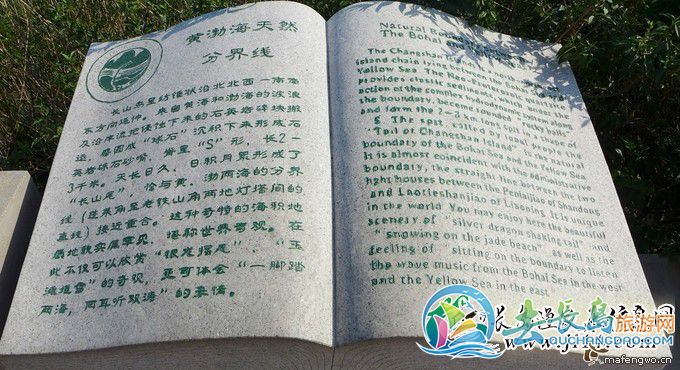 黄渤海天然
分界线
长山岛呈纺锤状沿北北西一南南
东方向延伸。来自黄海和渤海的波浪
及沿岸流把侵蚀下来的石英岩碎块搬
运、磨圆成“球石”沉积下来形成石
英岩砾石砂嘴，脊呈“S”形，长2-
3千米。天长日久，日积月累形成了
“长山尾”，恰与黄、渤两海的分界
线（蓬莱角至老铁山角两地灯塔间的
直线）接近重合。这种奇特的海积地
貌地貌实属罕见，堪称世界奇观。在
此不仅可以欣赏“银龙摆尾”、“玉
滩堆雪”的奇观，亦可体会“一脚踏
两海，两耳听双涛”的豪情。
Natural Boundary
The Bohai and
The Changshan
island chain lying between the Bohai and the
Yellow Sea. The
provides chased sediment, which under the
action of the complex hydrodynamic
the boundary, become rounded rocky balls
and form the 2-3 km long spit in shape of
S. The spit, called by local people the
"Tail of Changshan Island" is the natural
boundary of the Bohai Sea and the Yellow Sea.
It is almost coincident with the administrative
boundary, the straight line between the two
light houses between the Penglaijiao of Shandong
and Laotieshanjiao of Liaoning. It is unique
in the world. You may enjoy here the beautiful
scenery of "silver dragon shaking tail" and
"snowing on the jade beach" as well as the
feeling of "sitting on the boundary to listen
the wave music from the Bohai Sea in the west
and the Yellow Sea in the east.
长岛旅游网
OUCHANGDAO.COM
mafengwo.cn